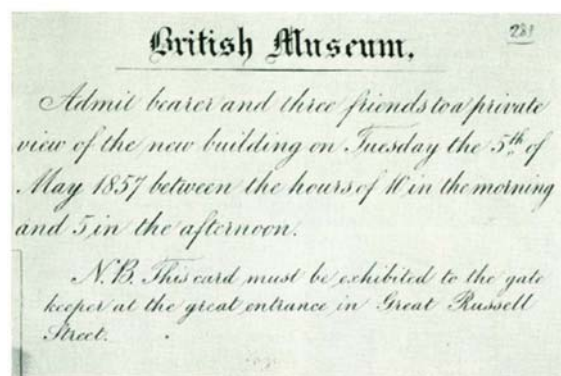 British Museum.
Admit bearer and three friends to a private
view of the new building on Tuesday the 5th of
May 1857 between the hours of 10 in the morning
and 5 in the afternoon.
N.B. This card must be exhibited to the gate
keeper at the great entrance in Great Russell
Street.